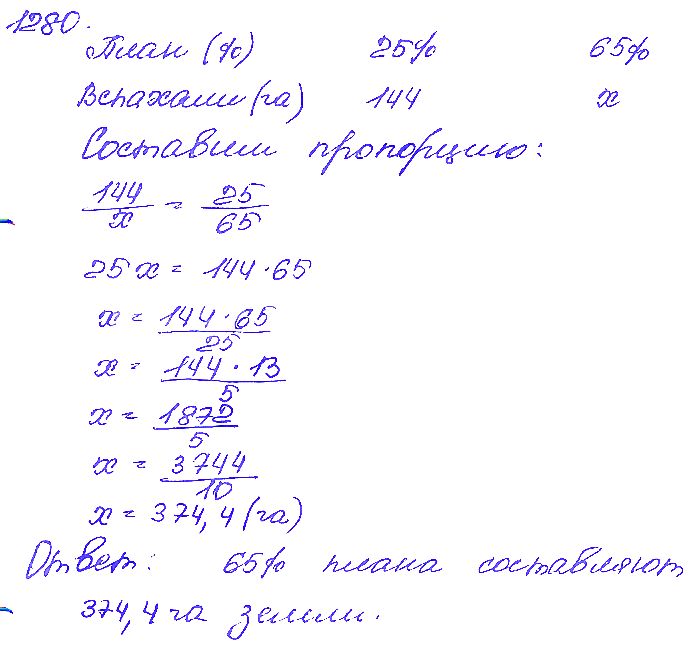 1280.
План (%) 25% 65%
Вспахали (га) 144 x
Составим пропорцию:
144/x = 25/65
25x = 144·65
x = 144·65/25
x = 144·13/5
x = 1872/5
x = 3744/10
x = 374,4 (га)
Ответ: 65% плана составляют
374,4 га земли.